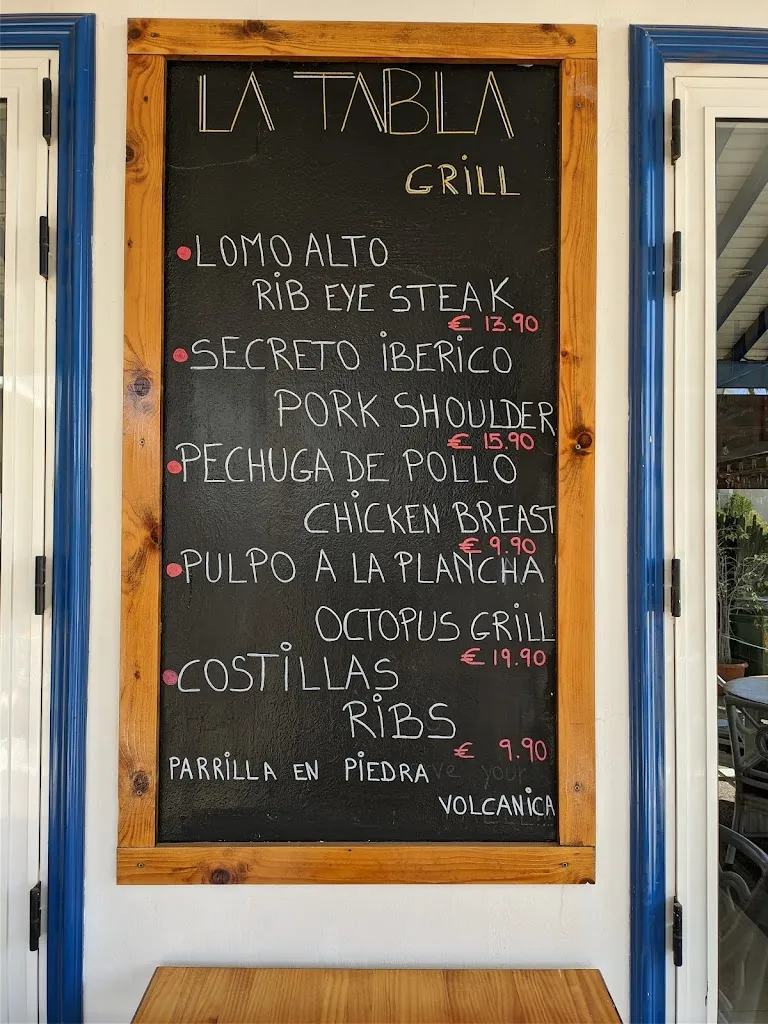 LA TABLA
GRILL
LOMO ALTO
RIB EYE STEAK
€ 13.90
SECRETO IBERICO
PORK SHOULDER
€ 15.90
PECHUGA DE POLLO
CHICKEN BREAST
€ 9.90
PULPO A LA PLANCHA
OCTOPUS GRILL
€ 19.90
COSTILLAS
RIBS
€ 9.90
PARRILLA EN PIEDRA
VOLCANICA